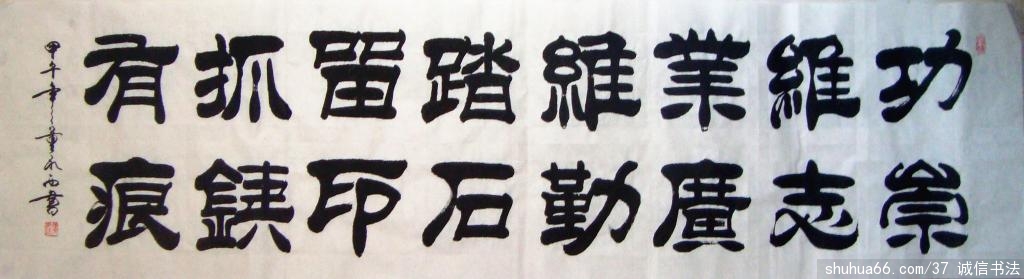 功崇
維志
業廣
維勤
踏石
留印
抓銕
有痕
甲午年董西書
shuhua66.com/37 诚信书法